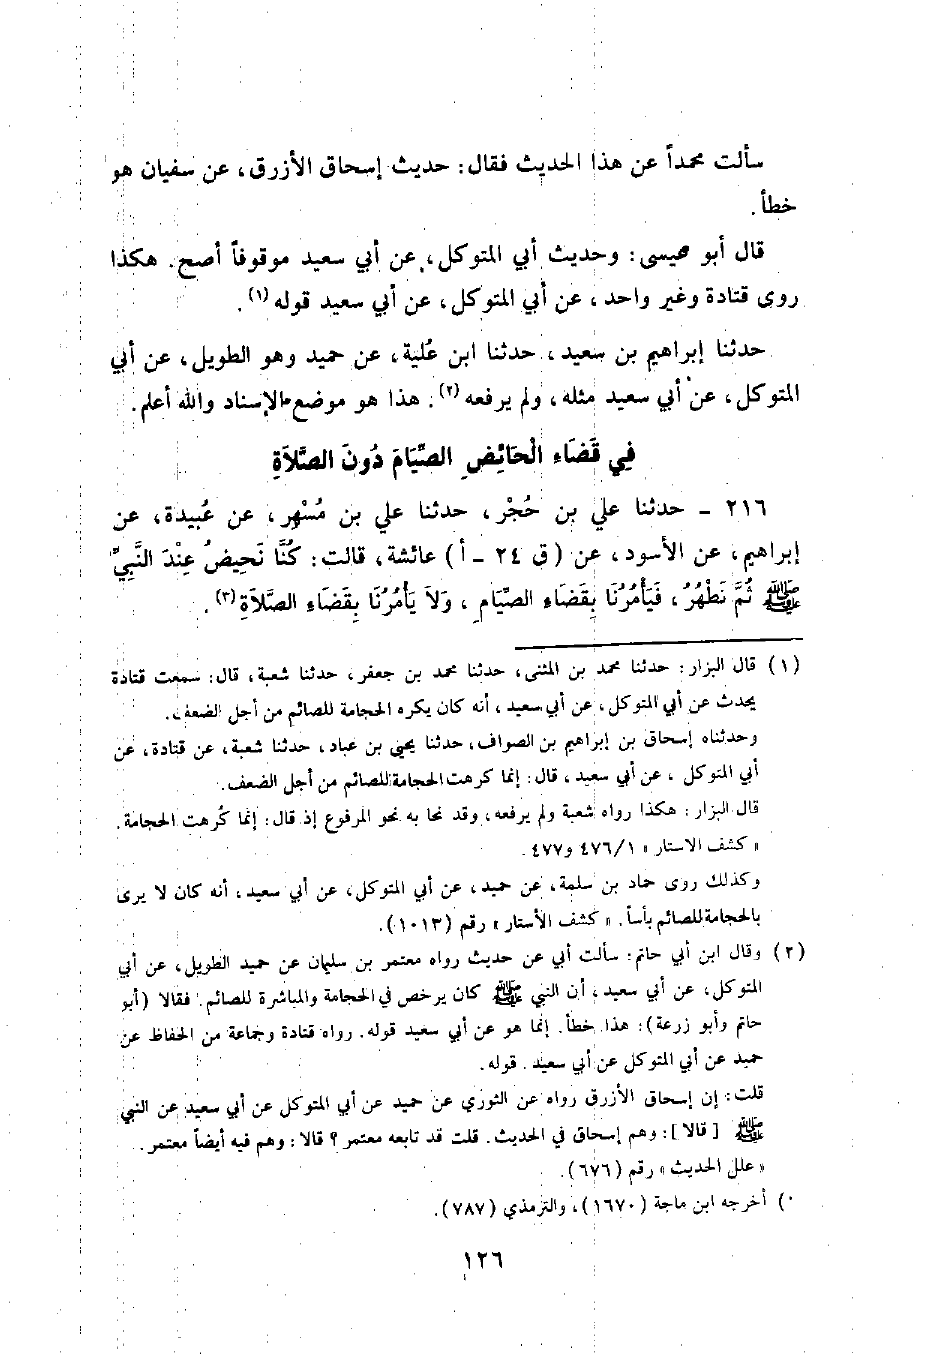 سألت محمداً عن هذا الحديث فقال: حديث إسحاق الأزرق، عن سفيان هو
خطأ.
قال أبو عيسى: وحديث أبي المتوكل، عن أبي سعيد موقوفاً أصح. هكذا
روى قتادة وغير واحد، عن أبي المتوكل، عن أبي سعيد قوله (١).
حدثنا إبراهيم بن سعيد، حدثنا ابن عُلية، عن حميد وهو الطويل، عن أبي
المتوكل، عن أبي سعيد مثله، ولم يرفعه (٢). هذا هو موضع الإسناد والله أعلم.
فِي قَضَاء الْحَائِضِ الصِّيَامَ دُونَ الصَّلاَةِ
٢١٦ - حدثنا علي بن حُجْر، حدثنا علي بن مُسْهِر، عن عُبيدة، عن
إبراهيم، عن الأسود، عن (ق ٢٤ - أ) عائشة، قالت: كُنَّا نَحِيضُ عِنْدَ النَّبِيِّ
ﷺ ثُمَّ نَطْهُرُ، فَيَأْمُرُنَا بِقَضَاءِ الصِّيَامِ، وَلاَ يَأْمُرُنَا بِقَضَاءِ الصَّلاَةِ (٣).
(١) قال البزار: حدثنا محمد بن المثنى، حدثنا محمد بن جعفر، حدثنا شعبة، قال: سمعت قتادة
يحدث عن أبي المتوكل، عن أبي سعيد، أنه كان يكره الحجامة للصائم من أجل الضعف.
وحدثناه إسحاق بن إبراهيم بن الصواف، حدثنا يحيى بن عباد، حدثنا شعبة، عن قتادة، عن
أبي المتوكل، عن أبي سعيد، قال: إنما كرهت الحجامة للصائم من أجل الضعف.
قال البزار: هكذا رواه شعبة ولم يرفعه، وقد نحا به نحو المرفوع إذ قال: إنما كُرهت الحجامة.
« كشف الاستار » ٤٧٦/١ و٤٧٧.
وكذلك روى حماد بن سلمة، عن حميد، عن أبي المتوكل، عن أبي سعيد، أنه كان لا يرى
بالحجامة للصائم بأساً. « كشف الأستار » رقم (١٠١٣).
(٢) وقال ابن أبي حاتم: سألت أبي عن حديث رواه معتمر بن سليمان عن حميد الطويل، عن أبي
المتوكل، عن أبي سعيد، أن النبي ﷺ كان يرخص في الحجامة والمباشرة للصائم. فقالا (أبو
حاتم وأبو زرعة): هذا خطأ. إنما هو عن أبي سعيد قوله. رواه قتادة وجماعة من الحفاظ عن
حميد عن أبي المتوكل عن أبي سعيد. قوله.
قلت: إن إسحاق الأزرق رواه عن الثوري عن حميد عن أبي المتوكل عن أبي سعيد عن النبي
ﷺ [قالا]: وهم إسحاق في الحديث. قلت قد تابعه معتمر؟ قالا: وهم فيه أيضاً معتمر.
« علل الحديث » رقم (٦٧٦).
) أخرجه ابن ماجة (١٦٧٠)، والترمذي (٧٨٧).
١٢٦